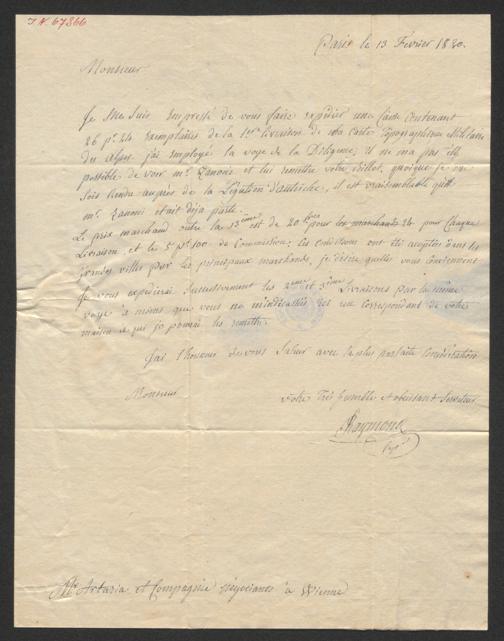 I.N. 67866
Paris le 13 Février 1820.
Monsieur
Je me suis empressé de vous faire expédier une Caisse Contenant
26 pr. 24 Exemplaires de la 1ere Livraison de ma Carte Topographique Militaire
des alpes. j'ai employé la voye de la Diligence, il ne m'a pas été
possible de voir mr. Zanoni et lui remettre votre Billet, quoique je me
sois rendu auprès de la Légation d'autriche, il est vraisemblable que
mr. Zanoni etait déja parti.
Le prix marchand outre la 13eme est de 20 pour les marchands 24 pour Chaque
Livraison, et le 5 pr. 100 de Commission; les conditions ont été acceptées dans les
grandes villes par les principaux marchands, je désire quelles vous conviennent
Je vous expedierai Successivement les 2eme et 3eme Livraisons par la même
voye à moins que vous ne m'indiquiez un correspondant de votre
maison à qui je pourrai les remettre.
J'ai l'honneur de vous Saluer avec la plus parfaite Considération
Monsieur
votre Très humble et obeissant Serviteur
Raymond
Mrs Artaria et Compagnie négocians à Vienne